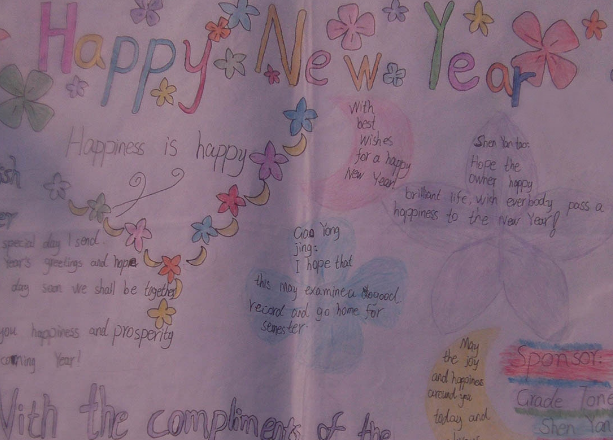 Happy New Year
Happiness is happy
With
best
wishes
for a happy
New Year!
Shen Yan
Hope the
owner happy
brilliant life, with everybody pass a
happiness to the New Year
special day I send
Year's greetings and hope
day soon we shall be together
you happiness and prosperity
coming Year!
Yong
jing:
I hope that
this may examine a
record and go home for
semester
May
the joy
and happiness
around you
today and
Sponsor:
Grade
Shen Yan
With the compliments of the